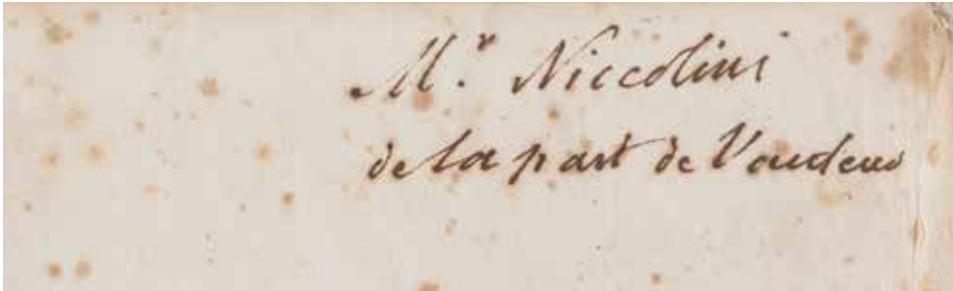 M.r Niccolini
de la part de l'auteur